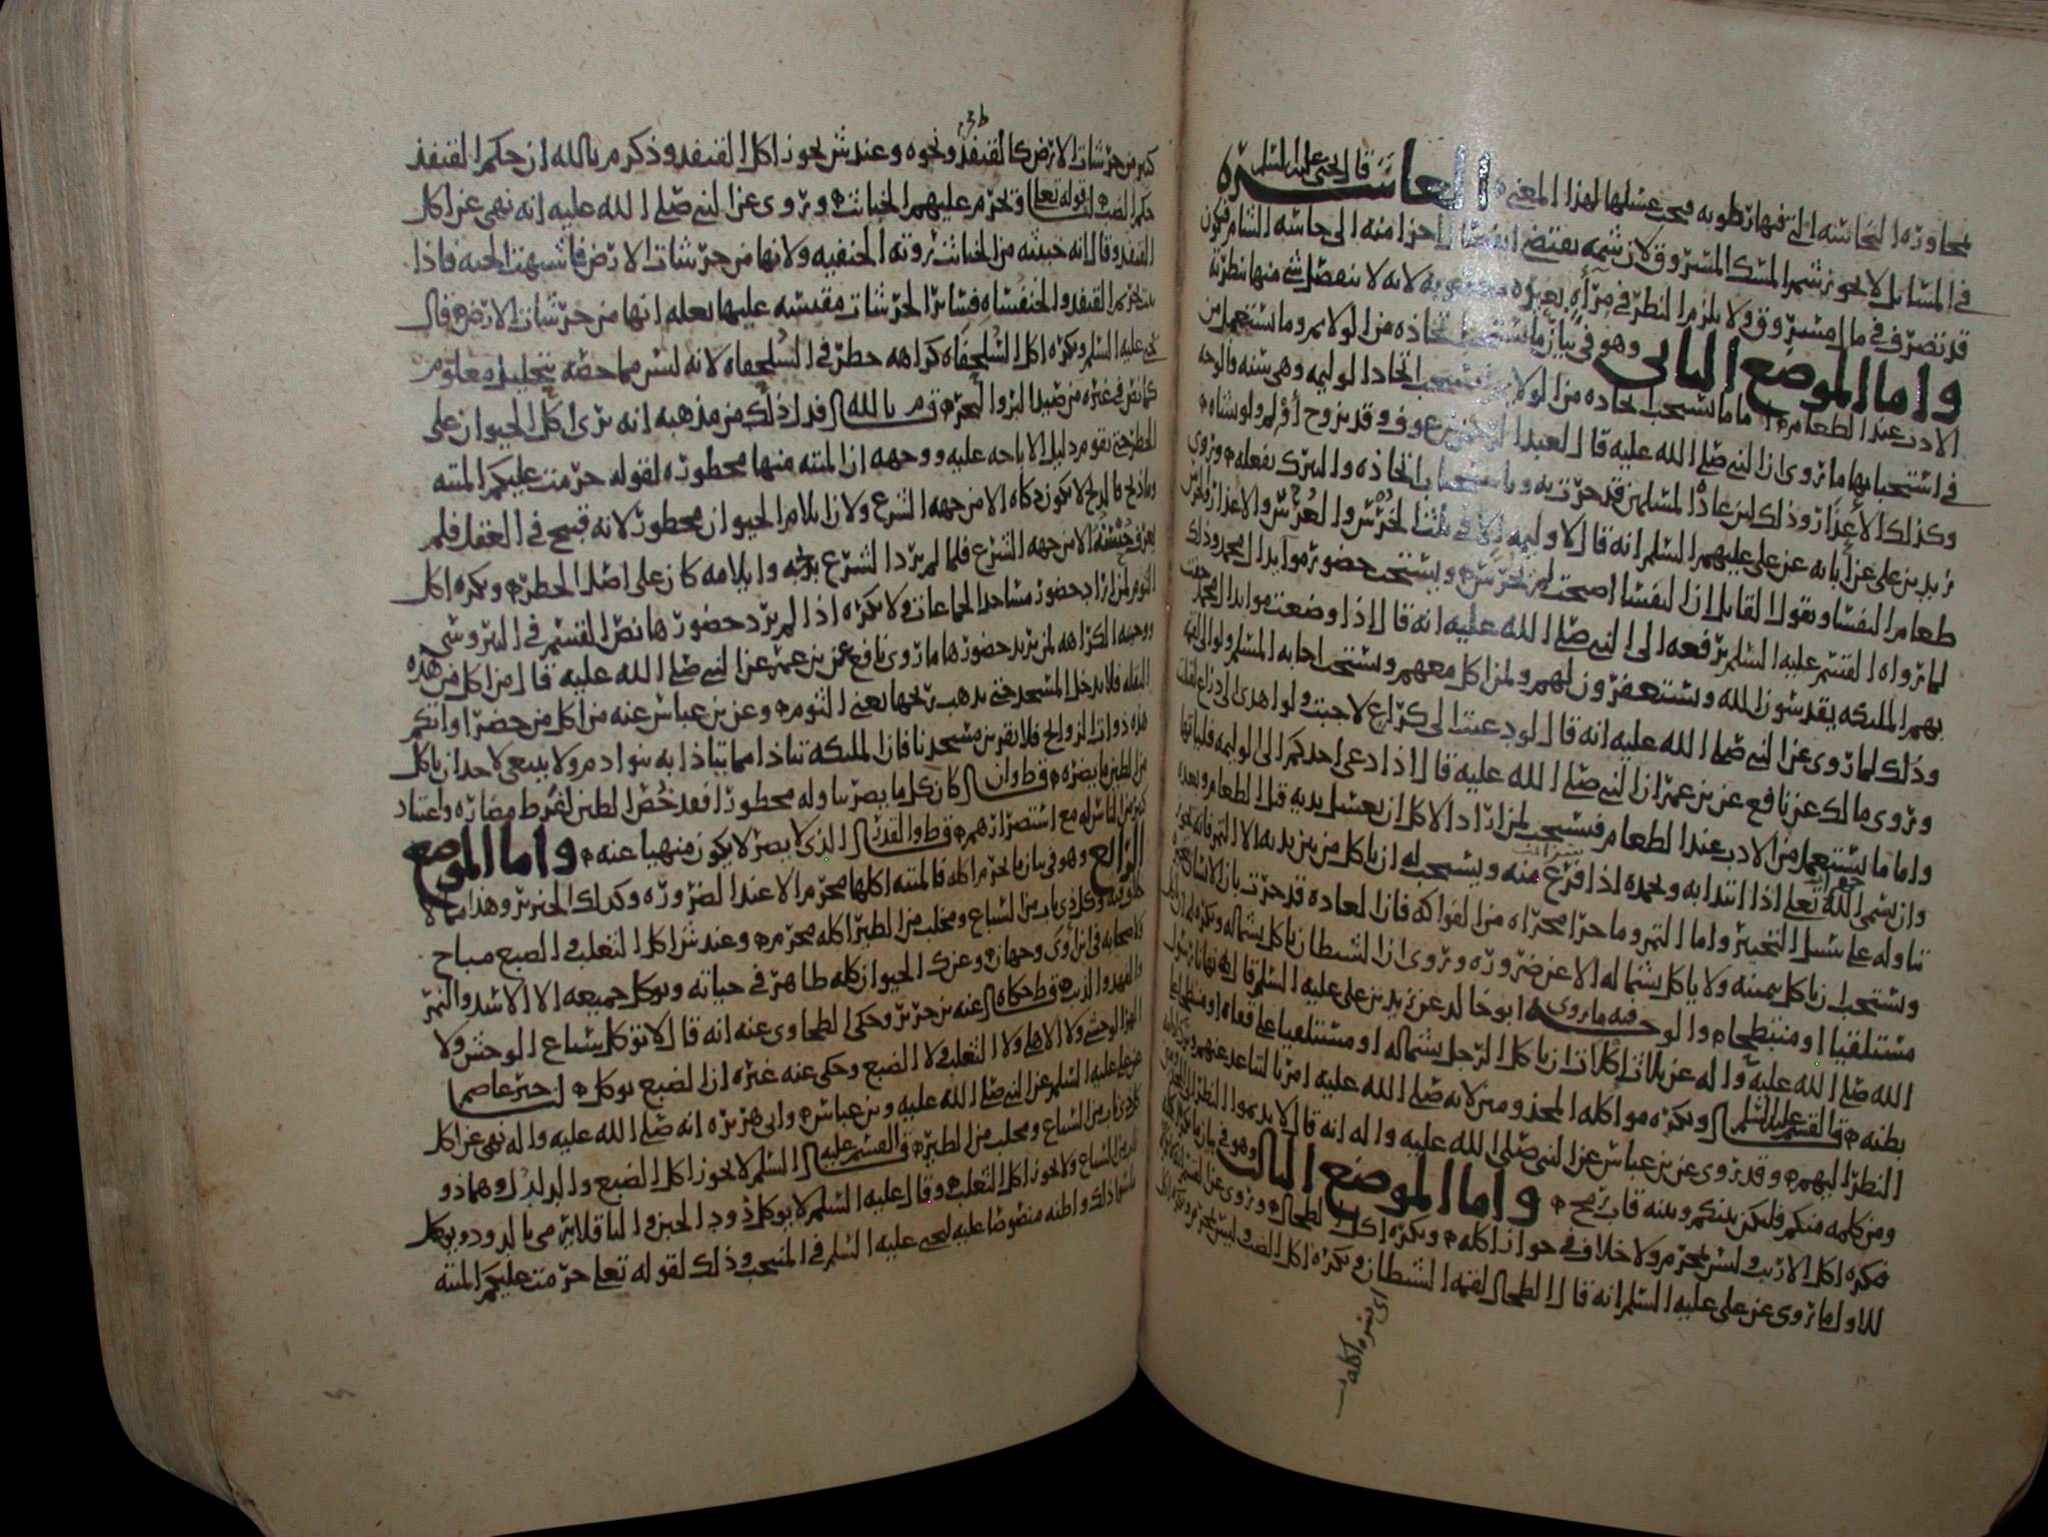 لمجاورة النجاسة التي فيها رطوبة فيجب غسلها لهذا المعنى العاشرة قال يحيى عليه السلم
في المسائل لا يجوز شم المسك المسروق لان شمه يقتضي اجزا منه الى حاسة الشام فيكون
قد تصرف في مال مسروق ولا يلزم النظر في مرأة بغيره لانه لا ينفصل شي منها بنظره
واما الموضع الثاني وهو في بيان ما يستحب اتخاذه من الولايم وما يستعمل من
الادب عند الطعام اما ما يستحب اتخاذه من الولايم فيستحب اتخاذ الوليمة وهي سنة والوجه
في استحبابها ما روي ان النبي صلى الله عليه قال لعبد الرحمن بن عوف وقد تزوج أولم ولو بشاة
وكذلك الأعذار وذلك لان عادة المسلمين قد جرت به وباستحباب اتخاذه والتبرك بفعله وروى
زيد بن علي عن آبايه عن علي عليهم السلم انه قال لا وليمة الا في ثلث الخرس والعرس والاعذار
طعام النفسا ويقول القايل ان النفسا اصبحت لم تخرس ويستحب حضور موايد ال محمد وذلك
لما رواه القسم عليه السلم يرفعه الى النبي صلى الله عليه انه قال اذا وضعت موايد ال محمد حفت
بهم الملئكة يقدسون الله ويستغفرون لهم ولمن اكل معهم ويستحب اجابة المسلم ولو الى لقمة
وذلك لما روي عن النبي صلى الله عليه انه قال لو دعيت الى كراع لاجبت ولو اهدي الي ذراع لقبلت
وروى مالك عن نافع عن بن عمر ان النبي صلى الله عليه قال اذا دعي احدكم الى الوليمة فلياتها
واما ما يستعمل من الادب عند الطعام فيستحب لمن اراد الاكل ان يغسل يديه قبل الطعام وبعده
وان يسمي الله تعلى اذا ابتدا به ويحمده اذا فرغ منه ويستحب له ان ياكل من بين يديه الا التمر فانه يجوز
تناوله على سبيل التخير واما التمر وما جرا مجراه من الفواكه فان العادة قد جرت بان الانسان
ويستحب ان ياكل بيمينه ولا ياكل بشماله الا عن ضرورة وروي ان الشيطان ياكل بشماله ويكره له ان ياكل
مستلقيا او منبطحا والوجه فيه ما روى ابو خالد عن زيد بن علي عليه السلم قال نهانا رسول
الله صلى الله عليه واله عن ثلاث اكلات ان ياكل الرجل بشماله او مستلقيا على قفاه او منبطحا على
بطنه قال القسم عليه السلم ويكره مواكلة المجذومين لانه صلى الله عليه امر بالتباعد عنهم
النظر اليهم وقد روي عن بن عباس عن النبي صلى الله عليه واله انه قال لا يديموا النظر الى
ومن كلمه منكم فليكن بينكم وبينه قاب رمح واما الموضع الثالث وهو في بيان ما يكره
فيكره اكل الارنب وليس بمحرم ولا خلاف في جواز اكله ويكره اكل الطحال وروي عن القسم
للاول ما روي عن علي عليه السلم انه قال الطحال لقمة الشيطان ويكره اكل الضب وليس بمحرم
اي يكره اكله
كبير من حرشات الارض كالقنفذ ونحوه وعند ش يجوز اكل القنفذ وذكر م بالله ان حكم القنفذ
حكم الضب لقوله تعلى وتحرم عليهم الخبايث وروي عن النبي صلى الله عليه انه نهى عن اكل
القنفذ وقال انه خبيثة من الخبايث روته الحنفية ولانها من حرشات الارض فاشبهت الحية فاذا
ثبت تحريم القنفذ والخنفساء فساير الحرشات مقيسة عليها بعلة انها من حرشات الارض قال
يحيى عليه السلم ويكره اكل السلحفاة كراهة حظر في السلحفاة لانه ليس مما خصه بتحليل معلوم
كما نص في غيره من صيد البر والبحر قال م بالله فدل ذلك من مذهبه انه يرى اكل الحيوان على
الحظر حتى يقوم دليل الاباحة عليه ووجهه ان الميتة منها محظورة لقوله حرمت عليكم الميتة
وما ذبح فالذبح لا يكون ذكاة الا من جهة الشرع ولان ايلام الحيوان محظور لانه قبيح في العقل فلم
يعرف حسنه الا من جهة الشرع فلما لم يرد الشرع بذبحه وايلامه كان على اصل الحظر ويكره اكل
الثوم لمن اراد حضور مساجد الجماعات ولا يكره اذا لم يرد حضورها نص القسم في النيروسي
ووجه الكراهة لمن يريد حضورها ما روى نافع عن بن عمر عن النبي صلى الله عليه قال من اكل من هذه
البقلة فلا يدخل المسجد حتى يذهب ريحها يعني الثوم وعن بن عباس عنه من اكل من خضراواتكم
هذه ذوات الروايح فلا يقربن مسجدنا فان الملئكة تتاذا مما يتاذا به بنوا دم ولا ينبغي لاحد ان ياكل
من الطين ما يضره قال ط وان كان كل ما يضر تناوله محظورا فقد خص الطين لفرط مضاره واعتياد
كثير من الناس له مع استضرارهم قال ط والقدر الذي لا يضر لا يكون منهيا عنه واما الموضع
الرابع وهو في بيان ما يحرم اكله فالميتة اكلها محرم الا عند الضرورة وكذلك الخنزير وهذا مما لا
خلاف فيه وكل ذي ناب من السباع ومخلب من الطير اكله محرم وعند ش اكل الثعلب والضبع مباح
ولاصحابه في ابن آوى وجهان وعن ك الحيوان كله طاهر في حياته ويوكل جميعه الا الاسد والنمر
والفهد والذيب قال ط حكاه عنه بن جرير وحكى الطحاوي عنه انه قال لا توكل سباع الوحش ولا
الهر الوحشي ولا الاهلي ولا الثعلب ولا الضبع وحكى عنه غيره ان الضبع يوكل لنا خبر عاصم
عن علي عليه السلم عن النبي صلى الله عليه وبن عباس وابي هريرة انه صلى الله عليه واله نهى عن اكل
كل ذي ناب من السباع ومخلب من الطير قال القسم عليه السلم لا يجوز اكل الضبع والدلدل وهما ذو
ناب من السباع ولا يجوز اكل الثعلب وقال عليه السلم لا يوكل دود الجبن والباقلا يرمى بالدود ويوكل
ما سوا ذلك واظنه منصوصا عليه ليحيى عليه السلم في المنتخب وذلك لقوله تعلى حرمت عليكم الميتة